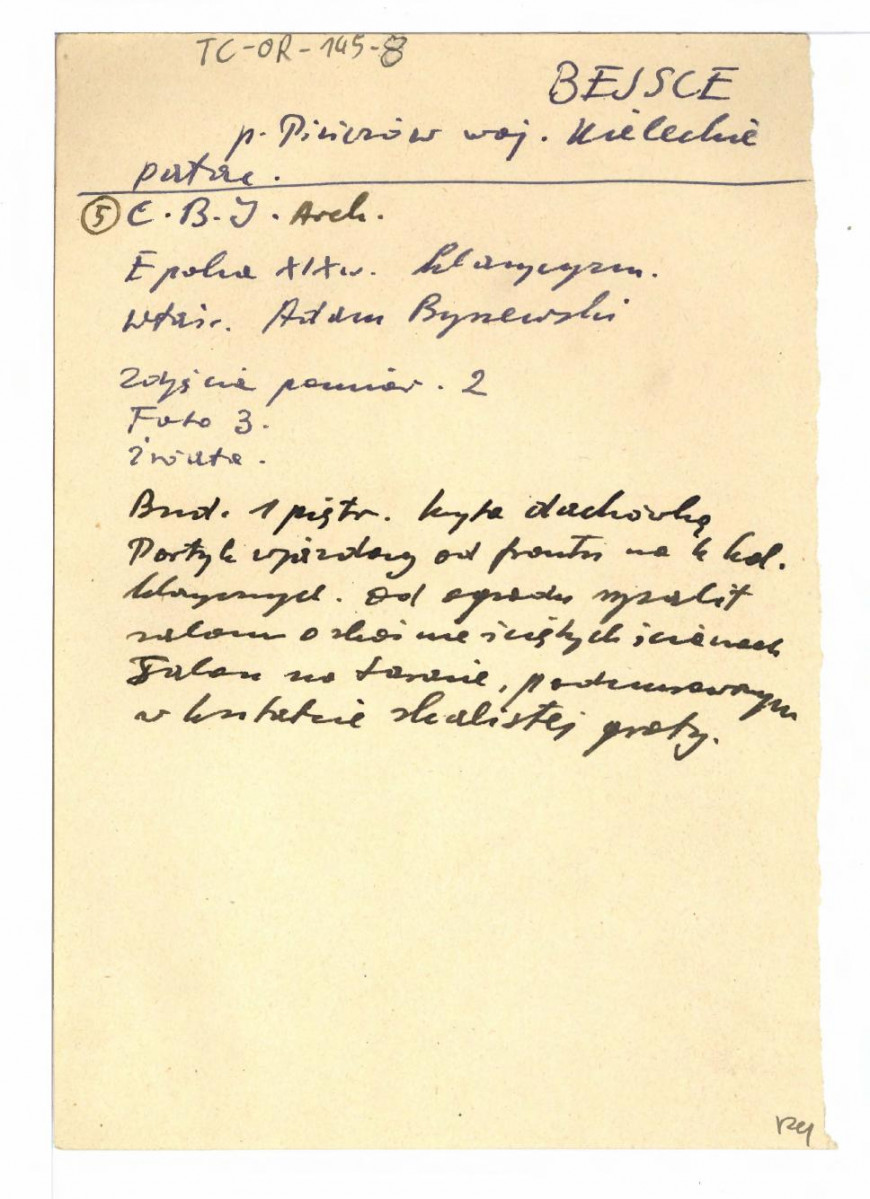 TC-OR-145-8
BEJSCE
p. Pińczów woj. Kieleckie
pałac.
5 C.B.I. Arch.
Epoka XIXw. klasycyzm.
właśc. Adam Byszewski
Zdjęcia pomiar. 2
Foto 3.
Źródła.
Bud. 1 piętr. kryta dachówką
Portyk wjazdowy od frontu na 4 kol.
klasycznych. Od ogrodu ryzalit
salonu o skośnie ściętych ścianach
Salon na tarasie, podmurowanym
w kształcie skalistej groty.